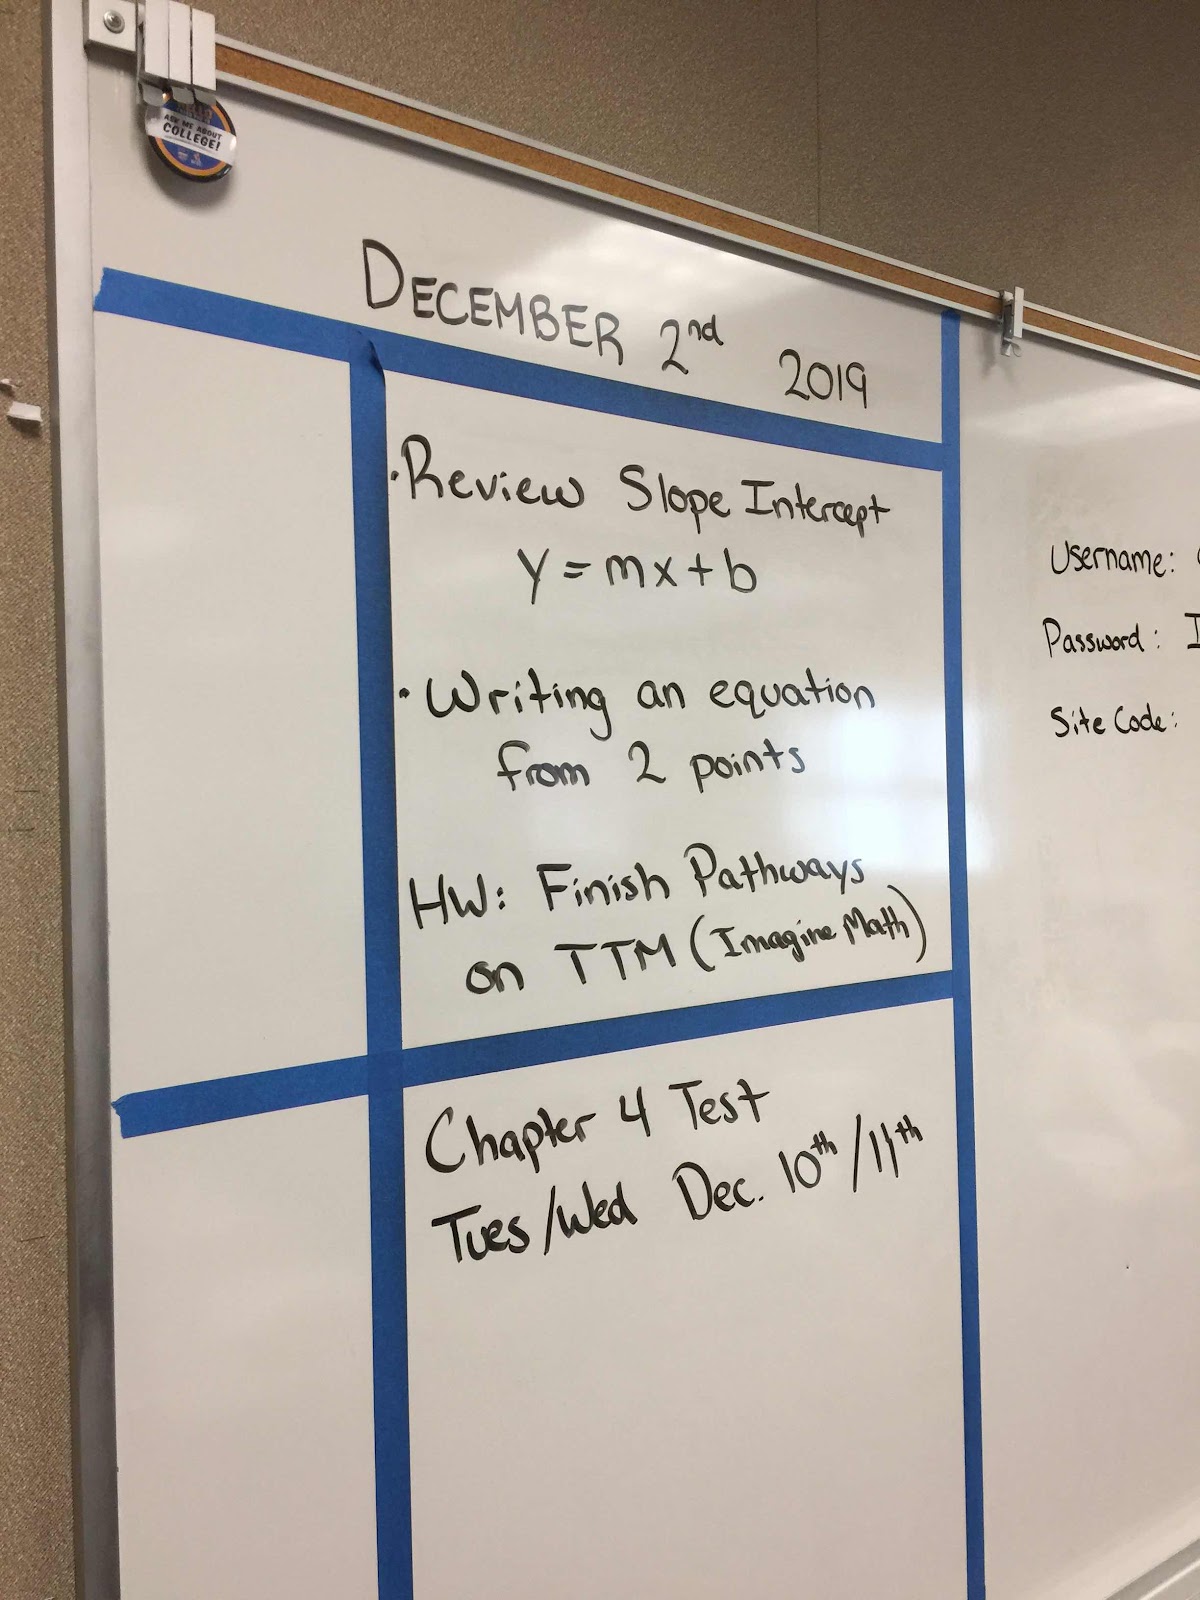 ASK ME ABOUT
COLLEGE!
DECEMBER 2nd 2019
·Review Slope Intercept
y = mx + b
·Writing an equation
from 2 points
HW: Finish Pathways
on TTM (Imagine Math)
Chapter 4 Test
Tues/Wed Dec. 10th/11th
Username:
Password: I
Site Code: